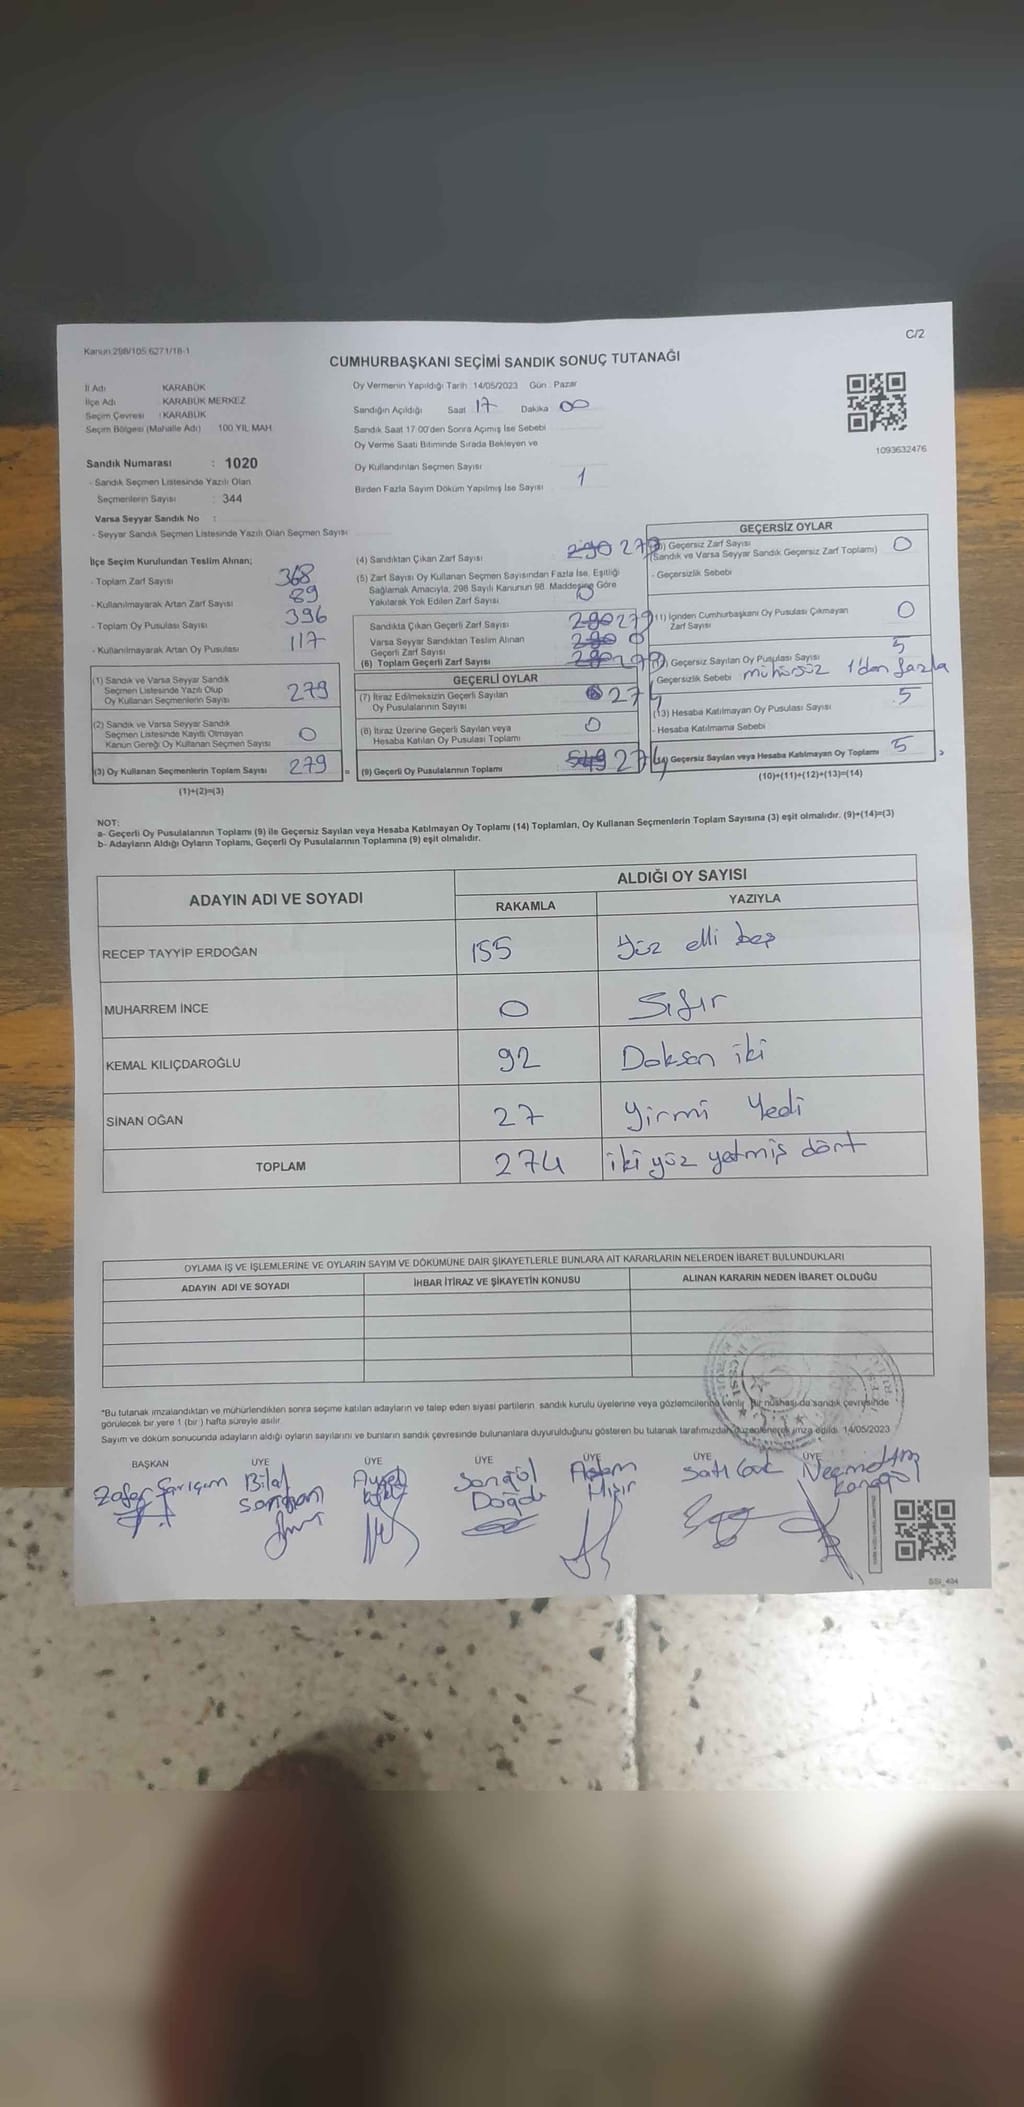 Kanun:298/105 6271/18-1
C/2
CUMHURBAŞKANI SEÇİMİ SANDIK SONUÇ TUTANAĞI
İl Adı KARABÜK
İlçe Adı : KARABÜK MERKEZ
Seçim Çevresi : KARABÜK
Seçim Bölgesi (Mahalle Adı) 100.YIL MAH.
Sandık Numarası : 1020
- Sandık Seçmen Listesinde Yazılı Olan
Seçmenlerin Sayısı : 344
Varsa Seyyar Sandık No :
- Seyyar Sandık Seçmen Listesinde Yazılı Olan Seçmen Sayısı
Oy Vermenin Yapıldığı Tarih 14/05/2023 Gün : Pazar
Sandığın Açıldığı Saat 17 Dakika 00
Sandık Saat 17:00'den Sonra Açımış İse Sebebi
Oy Verme Saati Bitiminde Sırada Bekleyen ve
Oy Kullandırılan Seçmen Sayısı
Birden Fazla Sayım Döküm Yapılmış İse Sayısı 1
1093632476
İlçe Seçim Kurulundan Teslim Alınan;
- Toplam Zarf Sayısı 368
- Kullanılmayarak Artan Zarf Sayısı 89
- Toplam Oy Pusulası Sayısı 396
- Kullanılmayarak Artan Oy Pusulası 117
(1) Sandık ve Varsa Seyyar Sandık
Seçmen Listesinde Yazılı Olup
Oy Kullanan Seçmenlerin Sayısı 279
(2) Sandık ve Varsa Seyyar Sandık
Seçmen Listesinde Kayıtlı Olmayan
Kanun Gereği Oy Kullanan Seçmen Sayısı 0
(3) Oy Kullanan Seçmenlerin Toplam Sayısı 279 =
(1)+(2)=(3)
(4) Sandıktan Çıkan Zarf Sayısı 290 279
(5) Zarf Sayısı Oy Kullanan Seçmen Sayısından Fazla İse, Eşitliği
Sağlamak Amacıyla, 298 Sayılı Kanunun 98. Maddesine Göre
Yakılarak Yok Edilen Zarf Sayısı 0
Sandıkta Çıkan Geçerli Zarf Sayısı 280 279
Varsa Seyyar Sandıktan Teslim Alınan
Geçerli Zarf Sayısı 280 0
(6) Toplam Geçerli Zarf Sayısı 280 279
GEÇERLİ OYLAR
(7) İtiraz Edilmeksizin Geçerli Sayılan
Oy Pusulalarının Sayısı 274
(8) İtiraz Üzerine Geçerli Sayılan veya
Hesaba Katılan Oy Pusulası Toplamı 0
(9) Geçerli Oy Pusulalarının Toplamı 549 274
GEÇERSİZ OYLAR
Geçersiz Zarf Sayısı
(Sandık ve Varsa Seyyar Sandık Geçersiz Zarf Toplamı) 0
- Geçersizlik Sebebi
(11) İçinden Cumhurbaşkanı Oy Pusulası Çıkmayan
Zarf Sayısı 0
Geçersiz Sayılan Oy Pusulası Sayısı 5
Geçersizlik Sebebi mühürsüz 1'den fazla
(13) Hesaba Katılmayan Oy Pusulası Sayısı 5
- Hesaba Katılmama Sebebi
Geçersiz Sayılan veya Hesaba Katılmayan Oy Toplamı 5
(10)+(11)+(12)+(13)=(14)
NOT:
a- Geçerli Oy Pusulalarının Toplamı (9) ile Geçersiz Sayılan veya Hesaba Katılmayan Oy Toplamı (14) Toplamları, Oy Kullanan Seçmenlerin Toplam Sayısına (3) eşit olmalıdır. (9)+(14)=(3)
b- Adayların Aldığı Oyların Toplamı, Geçerli Oy Pusulalarının Toplamına (9) eşit olmalıdır.
ADAYIN ADI VE SOYADI
ALDIĞI OY SAYISI
RAKAMLA YAZIYLA
RECEP TAYYİP ERDOĞAN 155 Yüz elli beş
MUHARREM İNCE 0 Sıfır
KEMAL KILIÇDAROĞLU 92 Doksan iki
SİNAN OĞAN 27 Yirmi Yedi
TOPLAM 274 iki yüz yetmiş dört
OYLAMA İŞ VE İŞLEMLERİNE VE OYLARIN SAYIM VE DÖKÜMÜNE DAİR ŞİKAYETLERLE BUNLARA AİT KARARLARIN NELERDEN İBARET BULUNDUKLARI
ADAYIN ADI VE SOYADI İHBAR İTİRAZ VE ŞİKAYETİN KONUSU ALINAN KARARIN NEDEN İBARET OLDUĞU
*Bu tutanak imzalandıktan ve mühürlendikten sonra seçime katılan adayların ve talep eden siyasi partilerin sandık kurulu üyelerine veya gözlemcilerine verilir. Bir nüshası da sandık çevresinde
görülecek bir yere 1 (bir) hafta süreyle asılır.
Sayım ve döküm sonucunda adayların aldığı oyların sayılarını ve bunların sandık çevresinde bulunanlara duyurulduğunu gösteren bu tutanak tarafımızdan düzenlenerek imza edildi. 14/05/2023
BAŞKAN ÜYE ÜYE ÜYE ÜYE ÜYE ÜYE
Zafer Sarıçam Bilal Aysel Songül Aslam Satı Necmettin
Doğdu Mısır
SSI_404